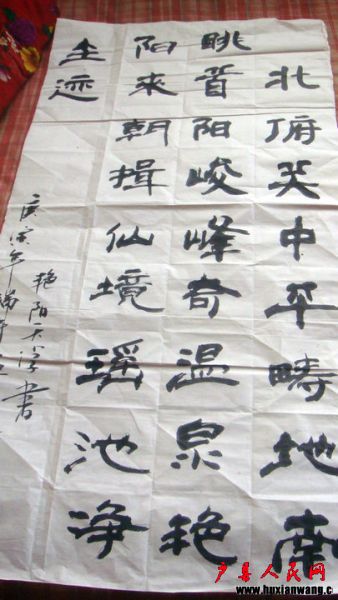 北俯关中平畴地南
眺首阳峻峰奇温泉艳
阳来朝揖仙境瑶池净
尘迹
庚寅年端午
艳阳天书
户县人民网
www.huxianwang.c